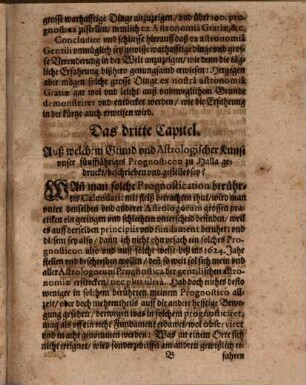 grosse warhafftige Dinge anzuzeigen / und über 100. pro-
gnostica zustellen / nemlich ex Astronomia Gratiæ, &c.
Concludire und schliesse hierauß daß ex astronomia
Gentili unmüglich sey gewisse warhafftige dinge und gros-
se Verenderung in der Welt anzuzeigen / wie denn die täg-
liche Erfahrung bißhero genungsamb erwiesen: Hergegen
aber mögen solche grosse Dinge ex nostrâ astronomia
Gratiæ gar wol und leicht auß unbeweglichem Grunde
demonstriret und entdecket werden / wie die Erfahrung
in der kürtze auch erweisen wird.
Das dritte Capitel.
Auß welchem Grund und Astrologischer Kunst
unser fünffjähriges Prognosticon zu Halla ge-
druckt / beschrieben und gestellet sey?
Wañ man solche Prognostication berühr-
tes Calendarii mit fleiß betrachten thut / wird man
unter denselben und anderer Astrologorum grossen pra-
cticken ein geringen und schlechten unterscheid befinden / weil
es auff derselben principiis und fundament beruhet: und
diesem sey also / dann ich nicht ohn ursach ein solches Pro-
gnosticon also und auff solche weise biß ins 1624. Jahr
stellen und beschreiben wollen / denn so weit sol sich mein und
aller Astrologorum Prognostica der gentilischen astro-
nomiæ erstrecken / nec plus ultrà. Hab doch nichts desto
weniger in solchem berührten meinem Prognostico all-
zeit / oder doch mehrentheils auff die andere hefftige Bewe-
gung gesehen / derwegen was in solchem prognosticiret,
mag als off ein recht Fundament erbawet wol observiret
und in acht genommen werden: Was an einem Ort sich
nicht ereignet / wird sonder zweiffel am andern gewißlich er-
B fahren